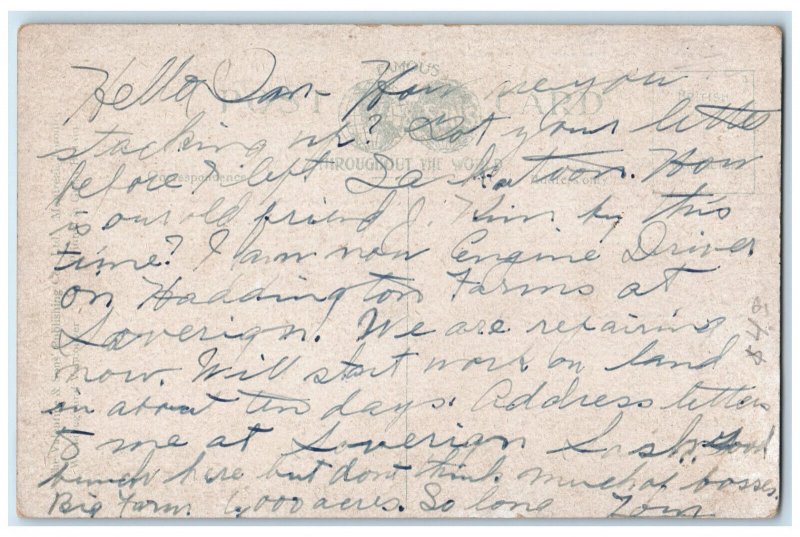 Hello Dan - How are you
stacking up? Got your letter
before I left Saskatoon. How
is our old friend J. Kim by this
time? I am now Engine Driver
on Haddington Farms at
Soverign. We are repairing
now. Will start work on land
in about ten days. Address letters
to me at Soverign Sask. Good
bunch here but dont think much of bosses.
Big Farm 6,000 acres. So long Tom
FAMOUS
POST CARD
THROUGHOUT THE WORLD
Correspondence
BRITISH
548